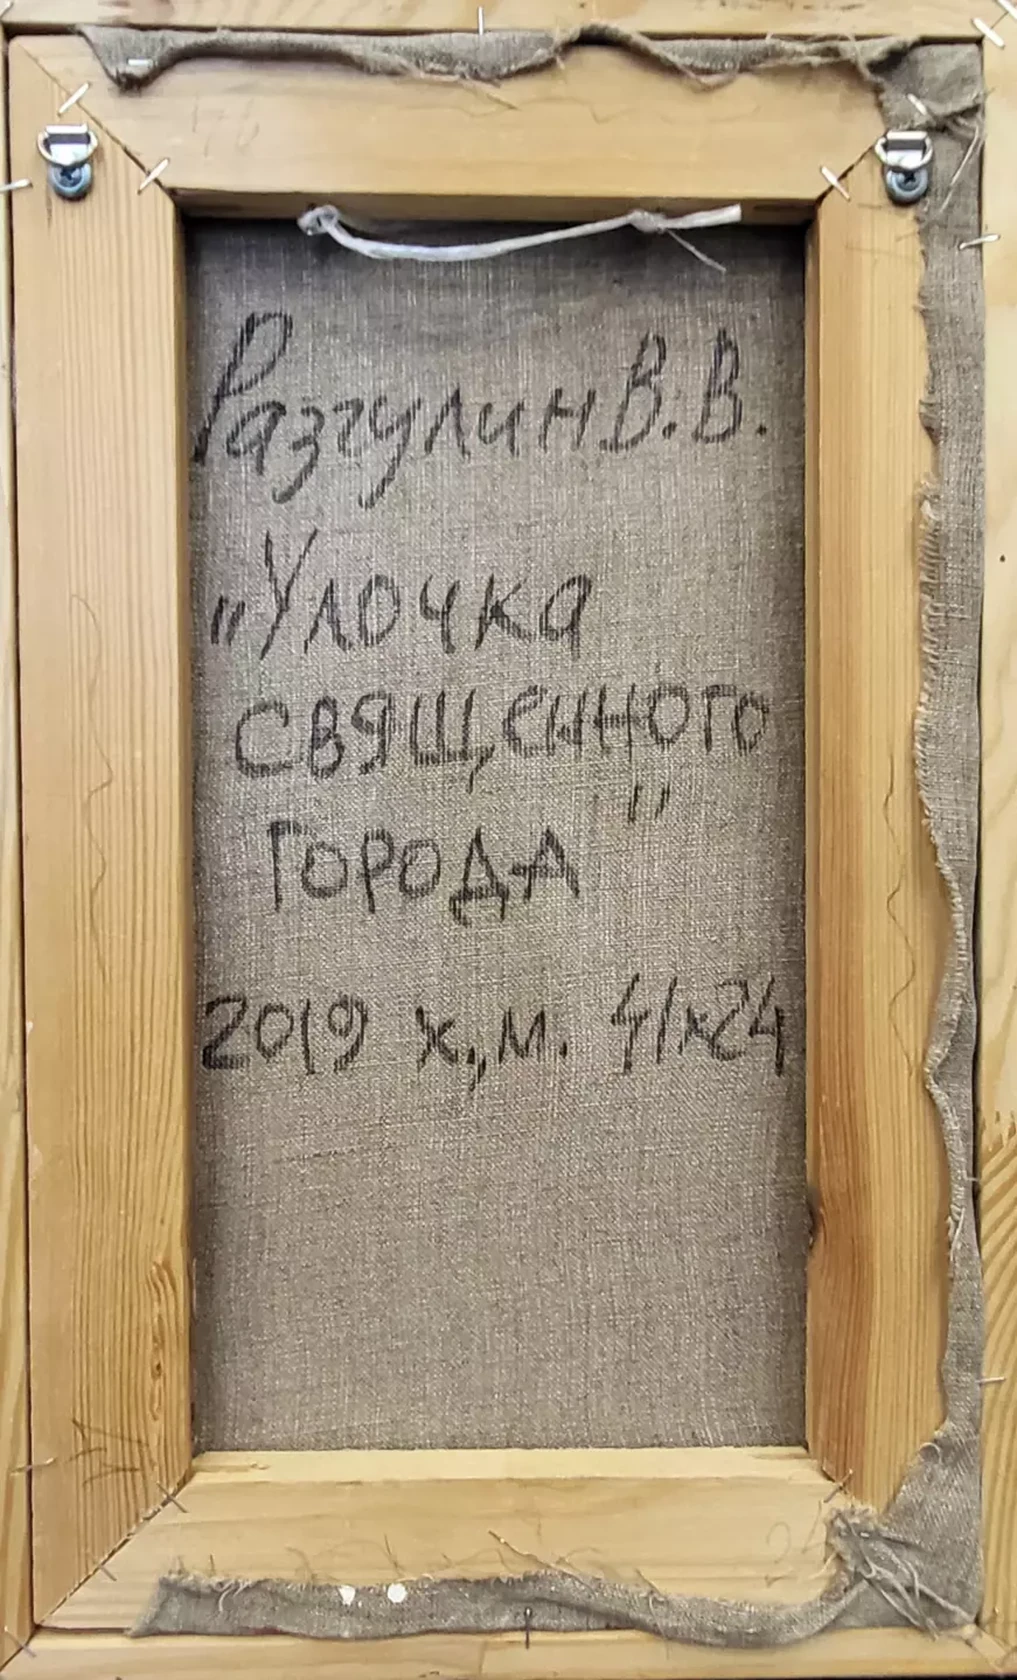 Разгулин В.В.
„Улочка
священного
города"
2019 х,м. 41x24